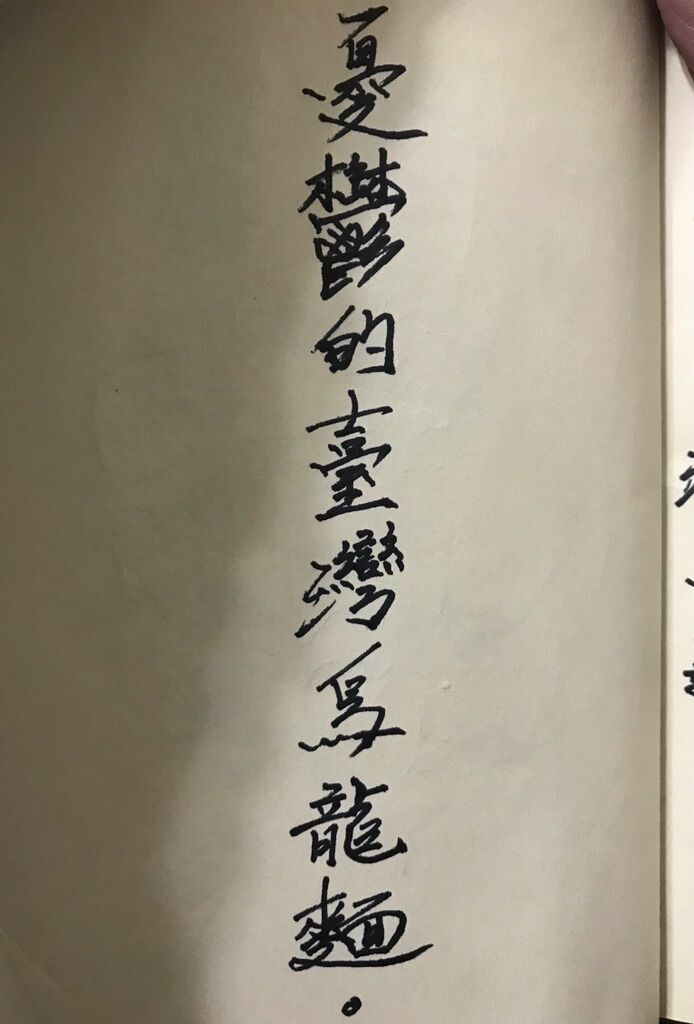 憂鬱的臺灣烏龍麵。